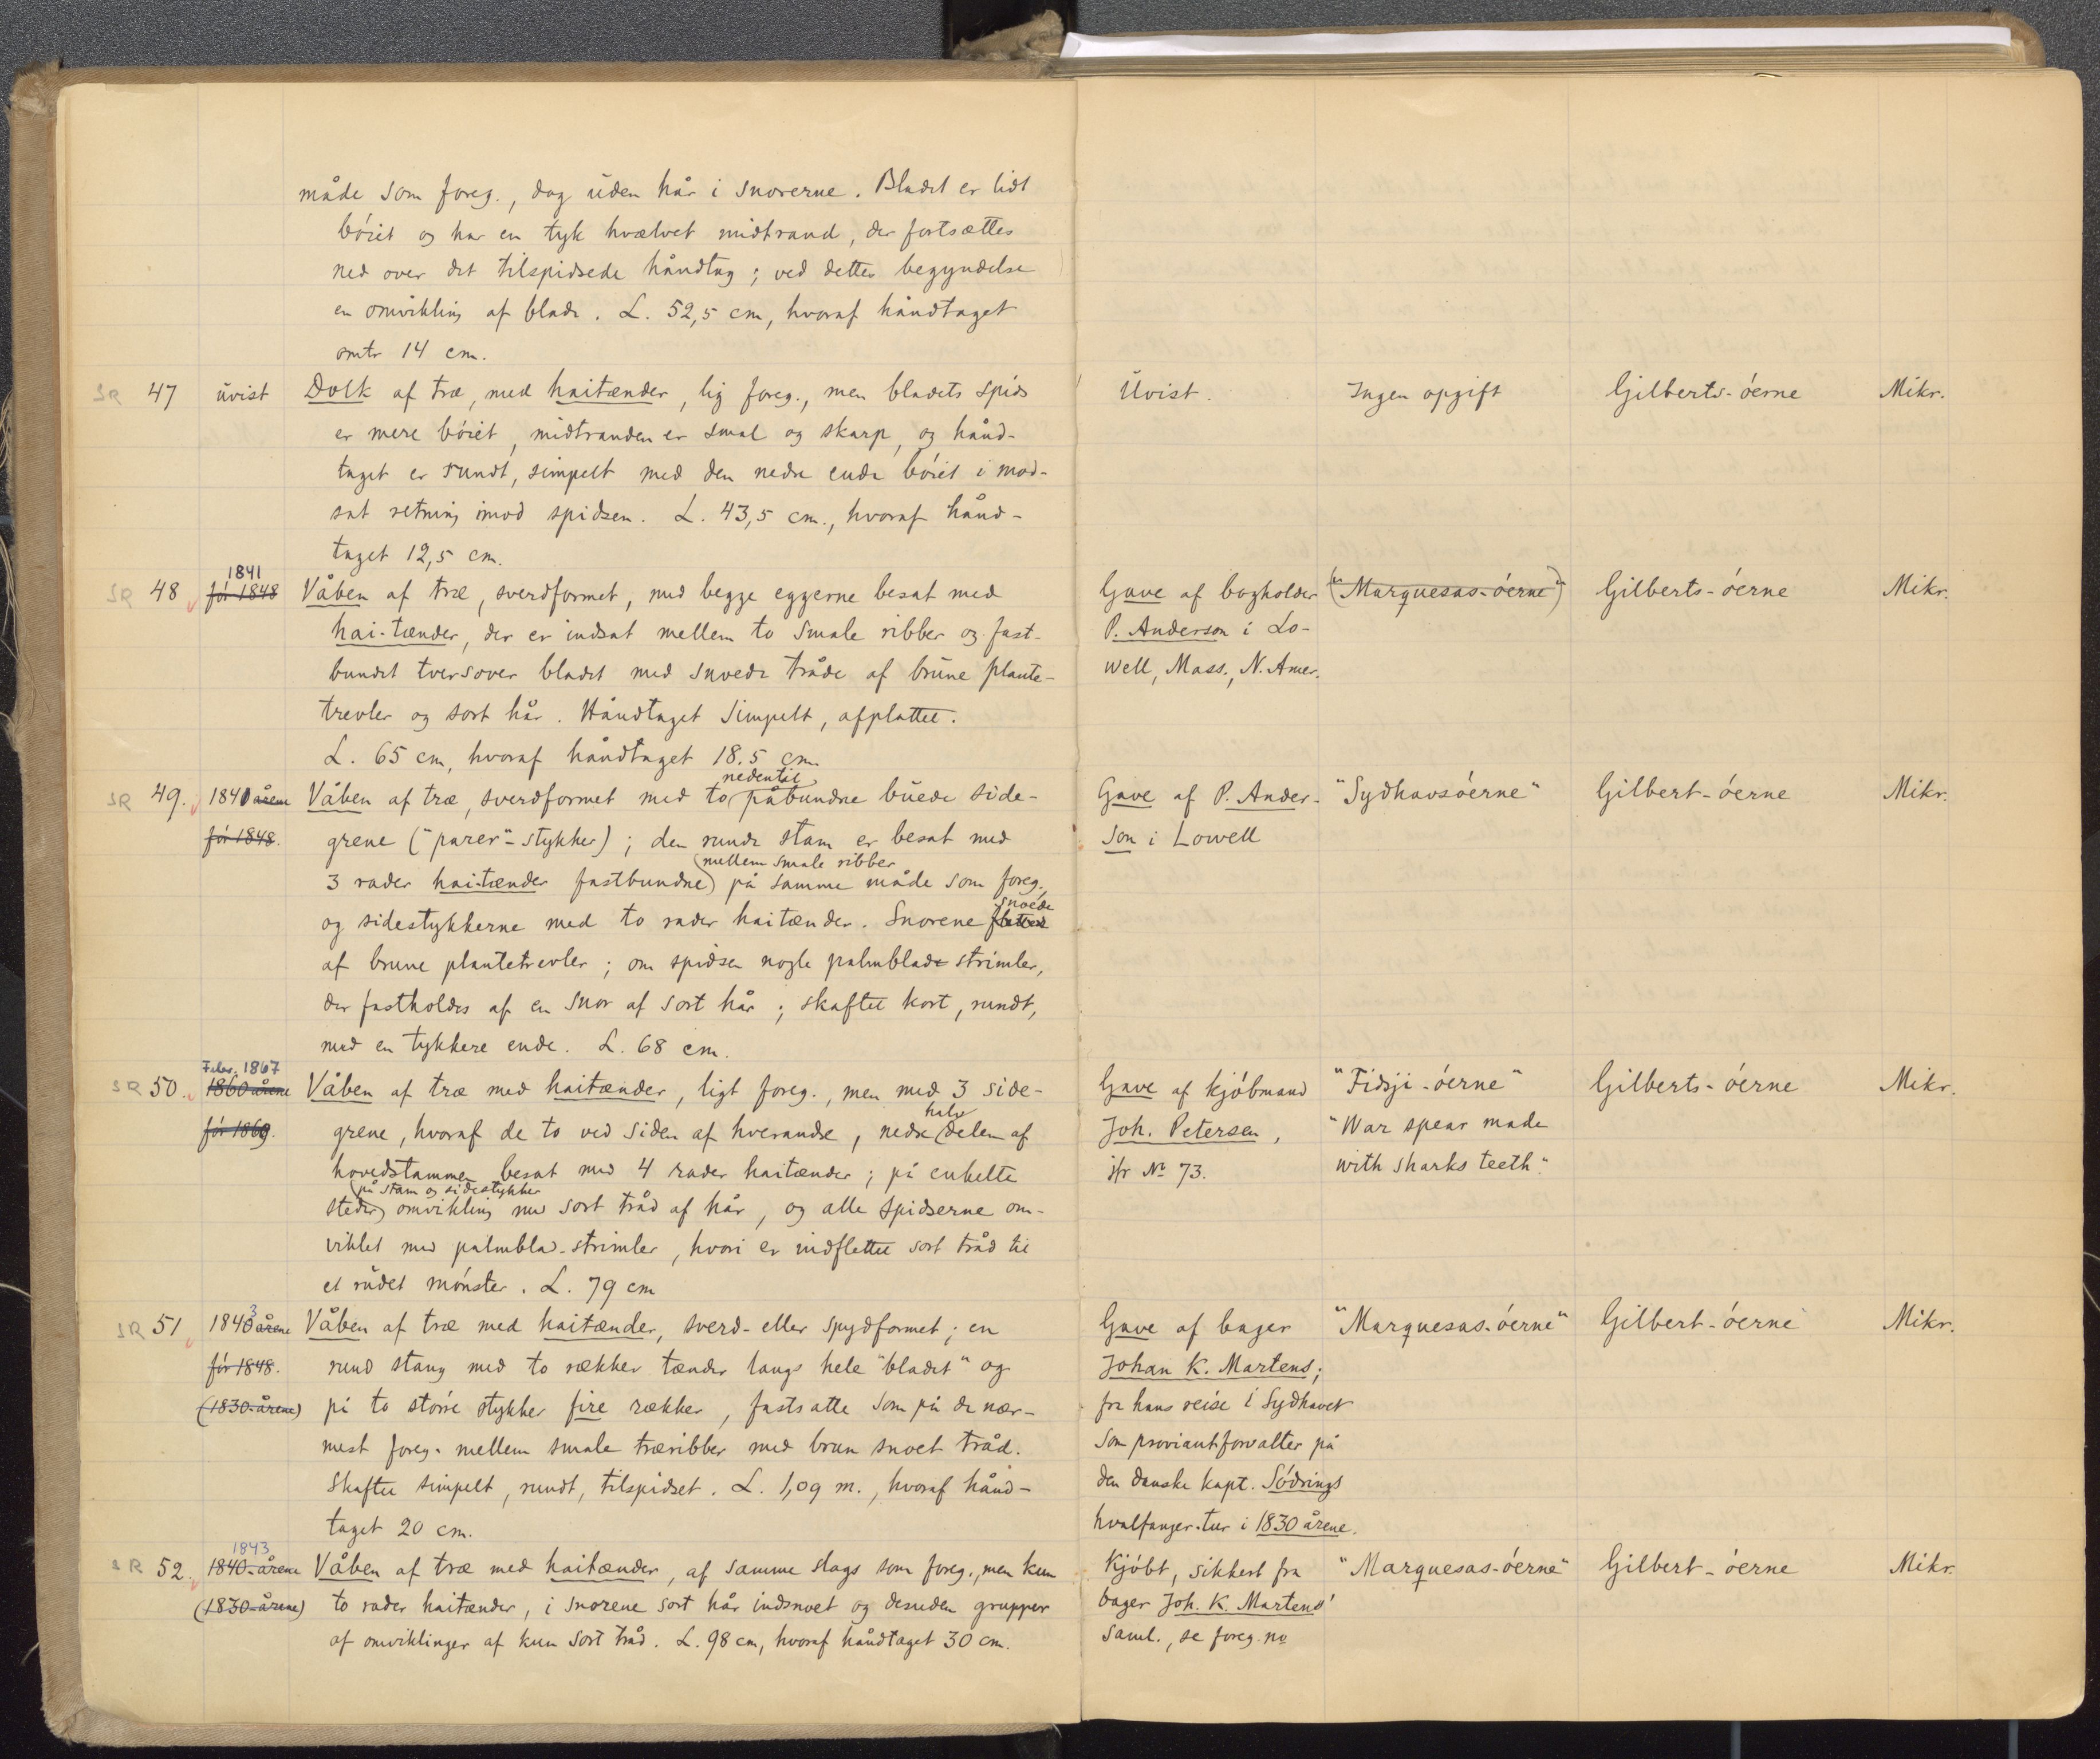 måde som foreg., dog ŭden hår i snorerne. Bladet er lidt
bóiet og har en tyk hvælvet midtrand, der fortsættes
ned over det tilspidsede håndtag; ved dettes begyndelse
en omvikling af blade. L. 52,5 cm, hvoraf håndtaget
omtr 14 cm.
SR 47 ŭvist Dolk af træ, med haitænder, lig foreg., men bladets spids
er mere bóiet, midtranden er smal og skarp, og hånd-
taget er rundt, simpelt med den nedre ende bóiet i mod-
sat retning imod spidsen. L. 43,5 cm., hvoraf hånd-
taget 12,5 cm.
Ŭvist. Ingen opgift Gilberts-óerne Mikr.
1841
SR 48 fór 1848 Våben af træ, sverdformet, med begge eggerne besat med
hai-tænder, der er indsat mellem to smale ribber og fast-
bundet tversover bladet med snoede tråde af brŭne plante-
trevler og sort hår. Håndtaget simpelt, afplattet.
L. 65 cm, hvoraf håndtaget 18.5 cm.
Gave af bogholder ("Marquesas-óerne") Gilberts-óerne Mikr.
P. Anderson i Lo-
well, Mass., N. Amer.
nedentil
SR 49. 1840 årene Våben af træ, sverdformet med to påbundne bŭede side-
fór 1848. grene ("parer"-stykker); den runde stam er besat med
mellem smale ribber
3 rader hai-tænder fastbundne på samme måde som foreg.,
snoede
og sidestykkerne med to rader haitænder. Snorene flettet
af brune plantetrevler; om spidsen nogle palmblade strimler,
der fastholdes af en snor af sort hår; skaftet kort, rundt,
med en tykkere ende. L. 68 cm.
Gave af P. Ander- "Sydhavsóerne" Gilbert-óerne Mikr.
son i Lowell
Febr. 1867
SR 50. 1860 årene Våben af træ med haitænder, ligt foreg., men med 3 side-
halv
fór 1869. grene, hvoraf de to ved siden af hverandre, nedre delen af
hovedstammen besat med 4 rader haitænder; på enkelte
på stam og sidestykker
steder omvikling med sort tråd af hår, og alle spidserne om-
viklet med palmblad-strimler, hvori er indflettet sort tråd til
et rŭdet mónster. L. 79 cm
Gave af kjóbmand "Fidsji-óerne" Gilberts-óerne Mikr.
Joh. Petersen, "War spear made
jfr No 73. with sharks teeth."
3
SR 51 1840 årene Våben af træ med haitænder, sverd- eller spydformet; en
fór 1848. rund stang med to rækker tænder langs hele "bladet" og
(1830-årene) på to stórre stykker fire rækker, fastsatte som på de nær-
mest foreg. mellem smale træribber med brun snoet tråd.
Skaftet simpelt, rundt, tilspidset. L. 1,09 m., hvoraf hånd-
taget 20 cm.
Gave af bager "Marquesas-óerne" Gilbert-óerne Mikr.
Johan K. Martens;
fra hans reise i Sydhavet
som proviantforvalter på
den danske kapt. Södrings
hvalfanger-tur i 1830 årene.
1843
SR 52. 1840-årene Våben af træ med haitænder, af samme slags som foreg., men kun
(1830-årene) to rader haitænder, i snorene sort hår indsnoet og desuden grupper
af omviklinger af kun sort tråd. L. 98 cm, hvoraf håndtaget 30 cm.
Kjóbt, sikkert fra "Marquesas-óerne" Gilbert-óerne Mikr.
bager Joh. K. Martens'
saml., se foreg. no